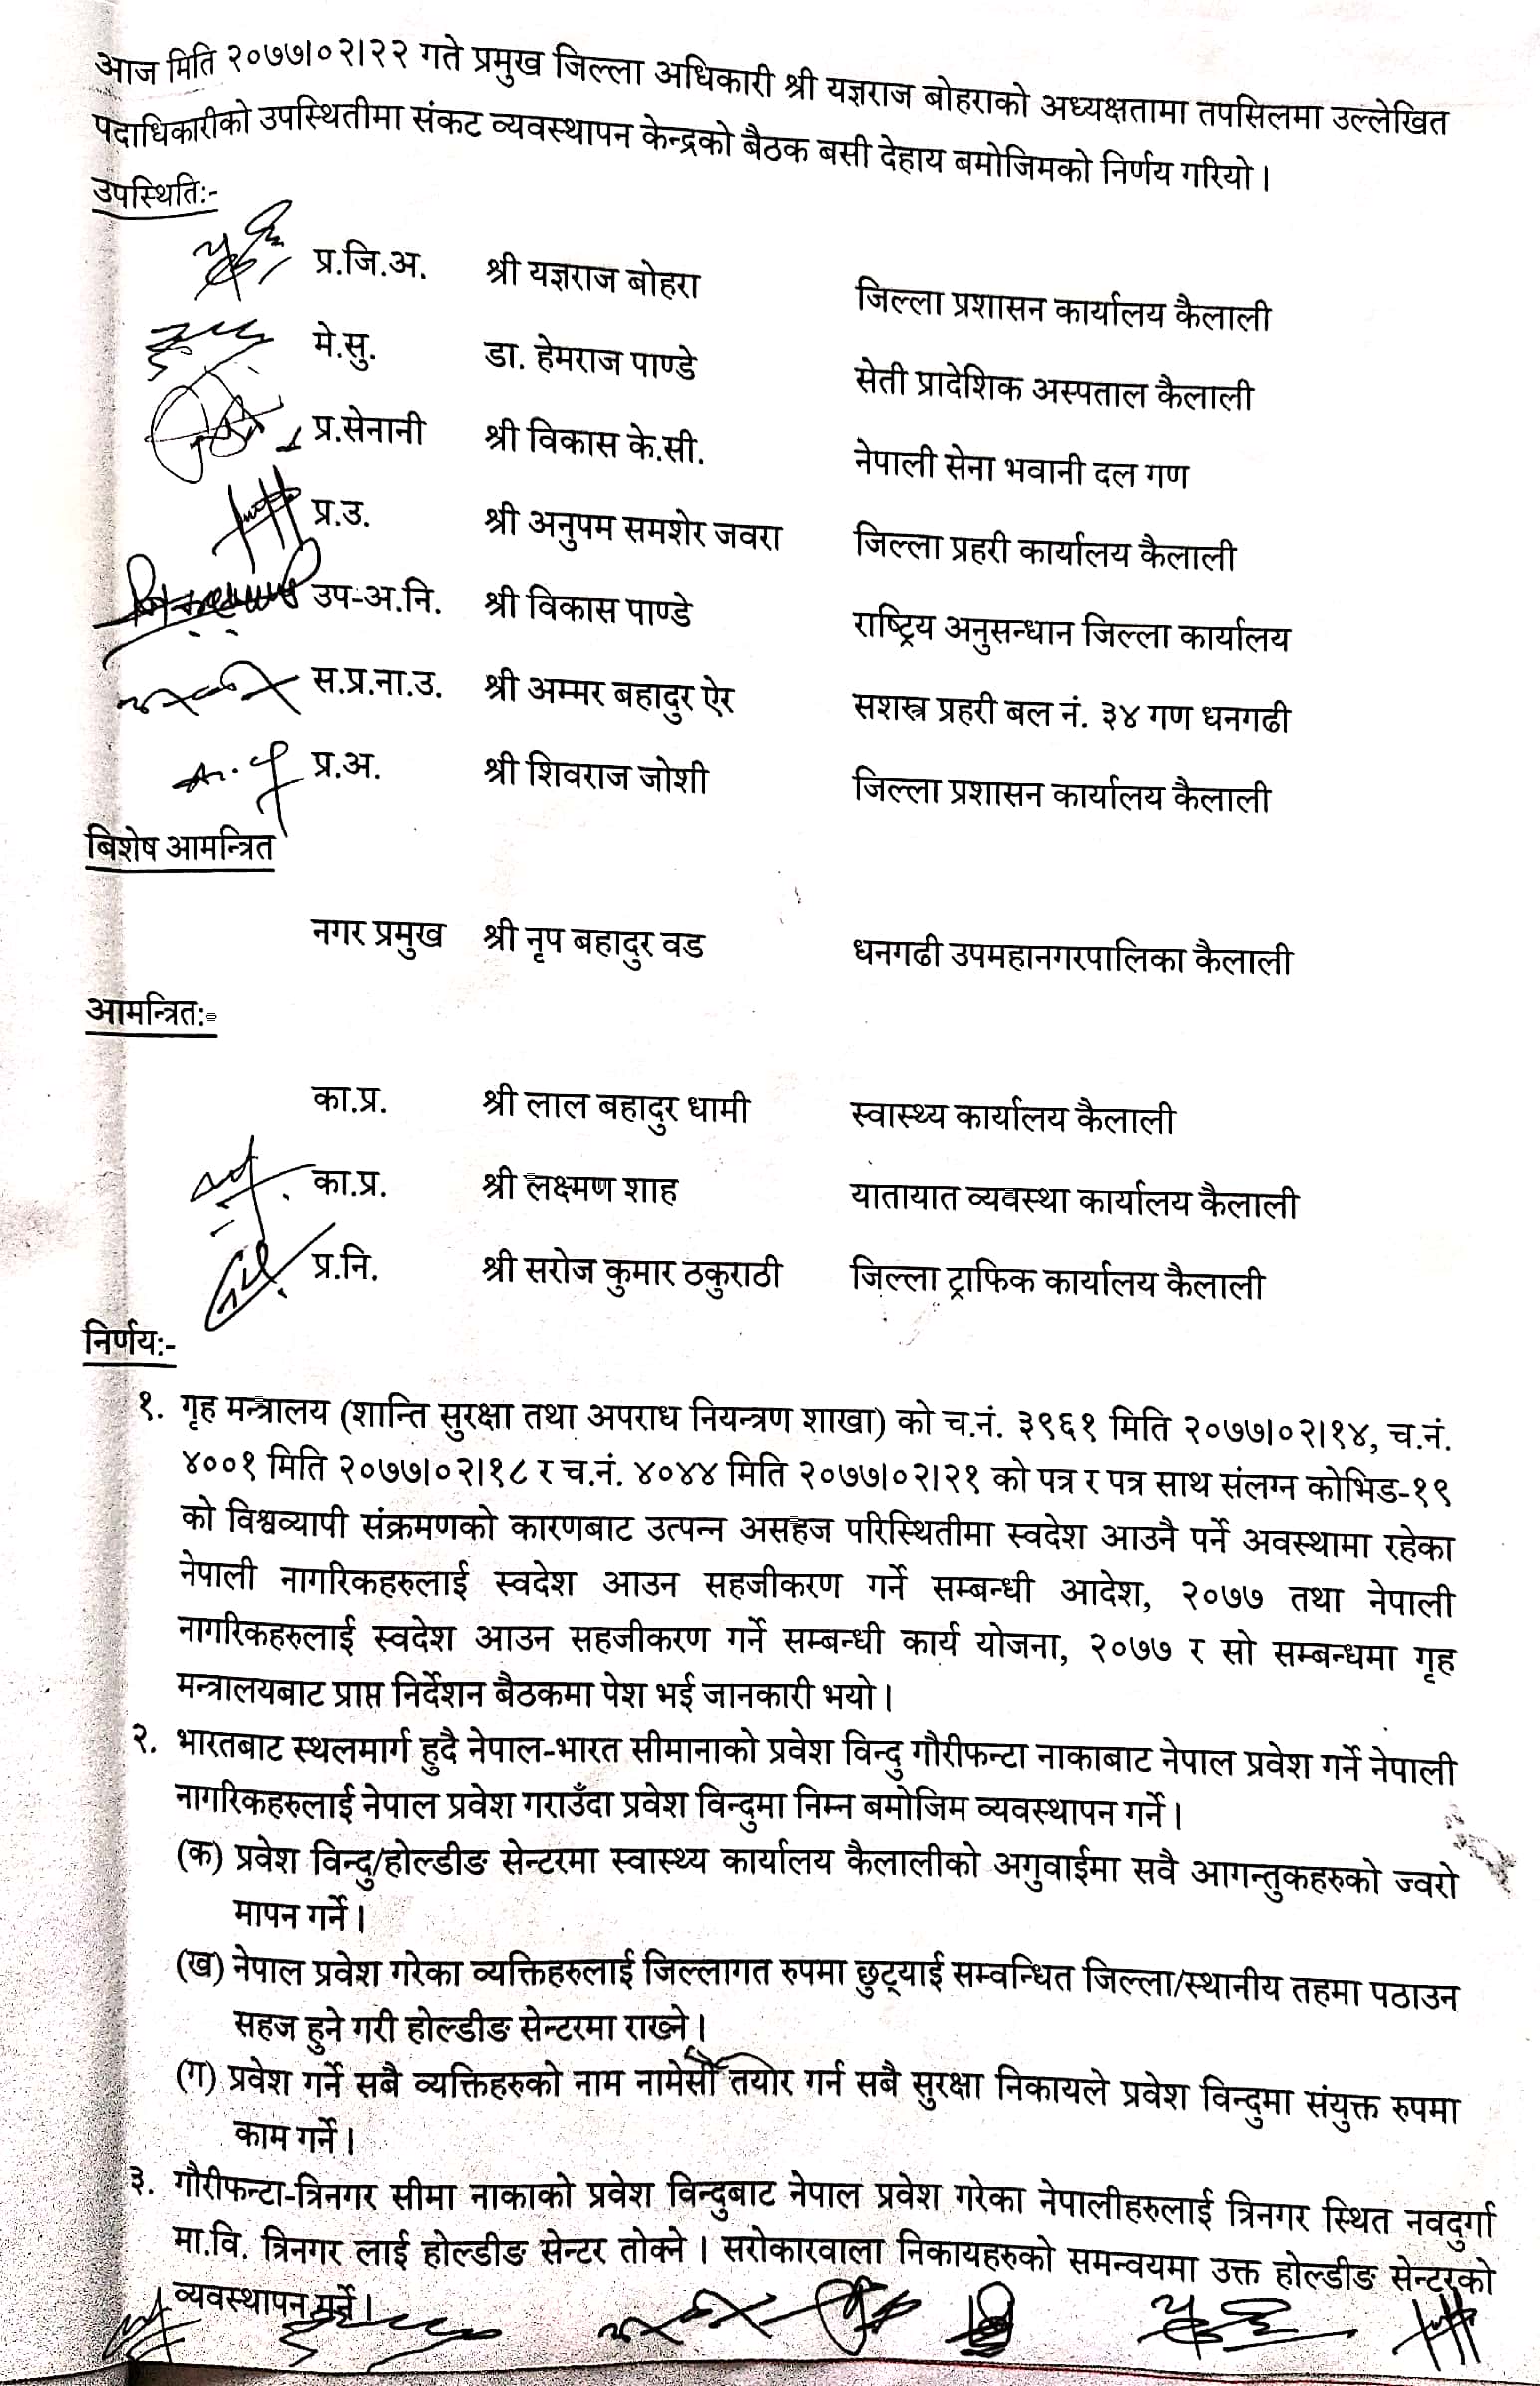 आज मिति २०७७।०२।२२ गते प्रमुख जिल्ला अधिकारी श्री यज्ञराज बोहराको अध्यक्षतामा तपसिलमा उल्लेखित
पदाधिकारीको उपस्थितीमा संकट व्यवस्थापन केन्द्रको बैठक बसी देहाय बमोजिमको निर्णय गरियो।
उपस्थिति:-
प्र.जि.अ. श्री यज्ञराज बोहरा जिल्ला प्रशासन कार्यालय कैलाली
मे.सु. डा. हेमराज पाण्डे सेती प्रादेशिक अस्पताल कैलाली
प्र.सेनानी श्री विकास के.सी. नेपाली सेना भवानी दल गण
प्र.उ. श्री अनुपम समशेर जवरा जिल्ला प्रहरी कार्यालय कैलाली
उप-अ.नि. श्री विकास पाण्डे राष्ट्रिय अनुसन्धान जिल्ला कार्यालय
स.प्र.ना.उ. श्री अम्मर बहादुर ऐर सशस्त्र प्रहरी बल नं. ३४ गण धनगढी
प्र.अ. श्री शिवराज जोशी जिल्ला प्रशासन कार्यालय कैलाली
बिशेष आमन्त्रित
नगर प्रमुख श्री नृप बहादुर वड धनगढी उपमहानगरपालिका कैलाली
आमन्त्रित:-
का.प्र. श्री लाल बहादुर धामी स्वास्थ्य कार्यालय कैलाली
का.प्र. श्री लक्ष्मण शाह यातायात व्यवस्था कार्यालय कैलाली
प्र.नि. श्री सरोज कुमार ठकुराठी जिल्ला ट्राफिक कार्यालय कैलाली
निर्णय:-
१. गृह मन्त्रालय (शान्ति सुरक्षा तथा अपराध नियन्त्रण शाखा) को च.नं. ३९६१ मिति २०७७।०२।१४, च.नं.
४००१ मिति २०७७।०२।१८ र च.नं. ४०४४ मिति २०७७।०२।२१ को पत्र र पत्र साथ संलग्न कोभिड-१९
को विश्वव्यापी संक्रमणको कारणबाट उत्पन्न असहज परिस्थितीमा स्वदेश आउनै पर्ने अवस्थामा रहेका
नेपाली नागरिकहरुलाई स्वदेश आउन सहजीकरण गर्ने सम्बन्धी आदेश, २०७७ तथा नेपाली
नागरिकहरुलाई स्वदेश आउन सहजीकरण गर्ने सम्बन्धी कार्य योजना, २०७७ र सो सम्बन्धमा गृह
मन्त्रालयबाट प्राप्त निर्देशन बैठकमा पेश भई जानकारी भयो।
२. भारतबाट स्थलमार्ग हुदै नेपाल-भारत सीमानाको प्रवेश विन्दु गौरीफन्टा नाकाबाट नेपाल प्रवेश गर्ने नेपाली
नागरिकहरुलाई नेपाल प्रवेश गराउँदा प्रवेश विन्दुमा निम्न बमोजिम व्यवस्थापन गर्ने।
(क) प्रवेश विन्दु/होल्डीङ सेन्टरमा स्वास्थ्य कार्यालय कैलालीको अगुवाईमा सवै आगन्तुकहरुको ज्वरो
मापन गर्ने।
(ख) नेपाल प्रवेश गरेका व्यक्तिहरुलाई जिल्लागत रुपमा छुट्याई सम्वन्धित जिल्ला/स्थानीय तहमा पठाउन
सहज हुने गरी होल्डीङ सेन्टरमा राख्ने।
(ग) प्रवेश गर्ने सबै व्यक्तिहरुको नाम नामेसी तयार गर्न सबै सुरक्षा निकायले प्रवेश विन्दुमा संयुक्त रुपमा
काम गर्ने।
३. गौरीफन्टा-त्रिनगर सीमा नाकाको प्रवेश विन्दुबाट नेपाल प्रवेश गरेका नेपालीहरुलाई त्रिनगर स्थित नवदुर्गा
मा.वि. त्रिनगर लाई होल्डीङ सेन्टर तोक्ने। सरोकारवाला निकायहरुको समन्वयमा उक्त होल्डीङ सेन्टरको
व्यवस्थापन गर्ने।